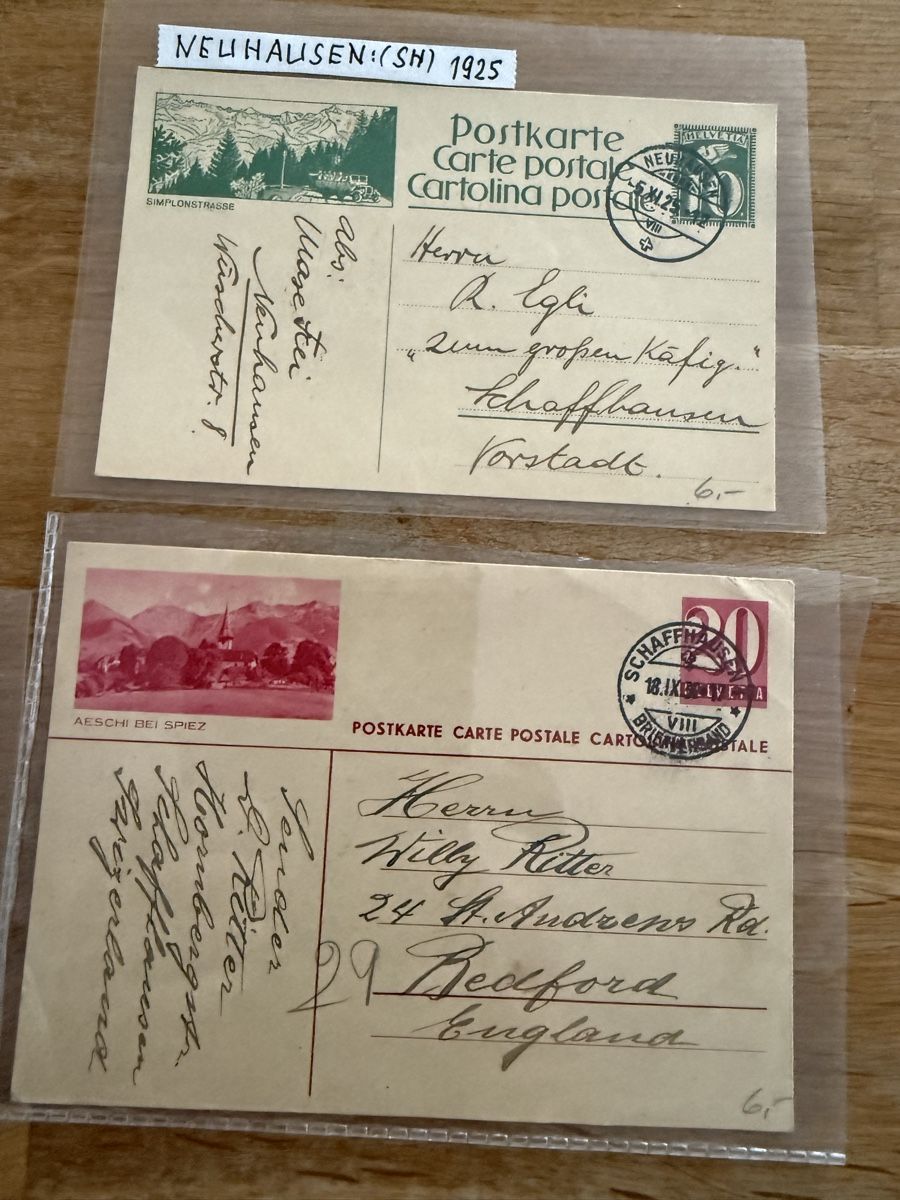 NEUHAUSEN:(SH) 1925
SIMPLONSTRASSE
Postkarte
Carte postale
Cartolina post
HELVETIA
10
NEUHAUSEN
VIII
Abs.
Neuhausen
8
Herrn
R. Egli
„zum großen Käfig."
Schaffhausen
Vorstadt.
6.-
AESCHI BEI SPIEZ
20
HELVETIA
SCHAFFHAUSEN
18.IX.
VIII
BRIEFVERSAND
POSTKARTE CARTE POSTALE CARTOLINA POSTALE
Sender
Ritter
Hornbergstr.
Schaffhausen
29
Herrn
Willy Ritter
24 St. Andrews Rd.
Bedford
England
6.-